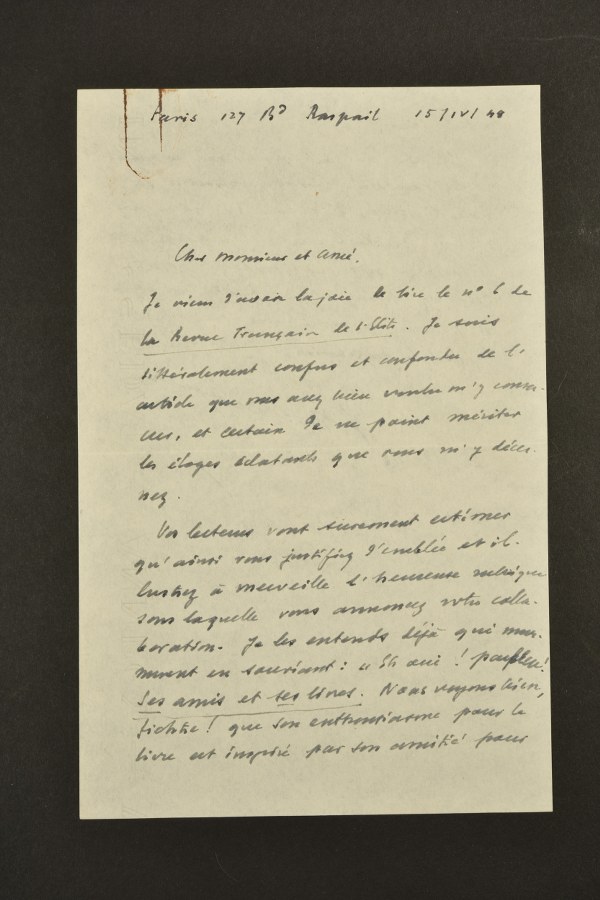 Paris 127 Bd Raspail 15/IV/48
Cher monsieur et ami,
Je viens d'avoir la joie de lire le n° 6 de
la Revue Française de l'Elite. Je suis
littéralement confus et confondu de l'
article que vous avez bien voulu m'y consa-
crer, et certain de ne point mériter
les éloges éclatants que vous m'y décer-
nez.
Vos lecteurs vont surement estimer
qu'ainsi vous justifiez d'emblée et il-
lustrez à merveille l'heureuse rubrique
sous laquelle vous annoncez votre colla-
boration. Je les entends déjà qui mur-
murent en souriant : « Eh oui ! parbleu !
Ses amis et ses livres. Nous voyons bien,
fichtre ! que son enthousiasme pour le
livre est inspiré par son amitié pour